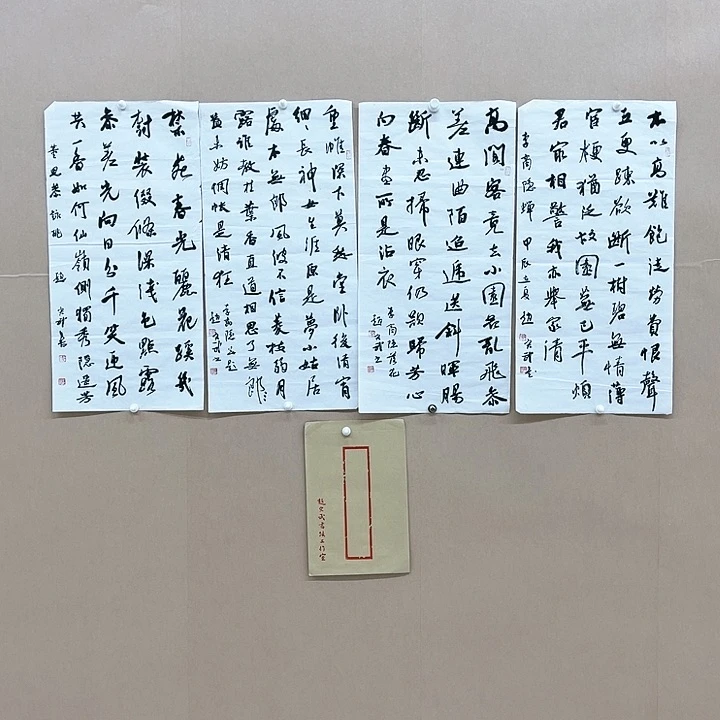 本以高難飽徒勞費恨聲
五更疎欲斷一樹碧無情薄
宦梗猶泛故園蕪已平煩
君最相警我亦舉家清
李商隱蟬 甲辰立夏 趙宏武書
高閣客竟去小園花亂飛參
差連曲陌迢遞送斜暉腸
斷未忍掃眼穿仍欲歸芳心
向春盡所得是沾衣
李商隱落花
趙宏武書
重帷深下莫愁堂臥後清宵
細細長神女生涯原是夢小姑居
處本無郎風波不信菱枝弱月
露誰教桂葉香直道相思了無郎
益未妨惆悵是清狂 李商隱無題
趙宏武書
禁苑春光麗花蹊幾
樹裝綴條深淺色點露
參差光向日分千笑迎風
共一香如何仙嶺側獨秀隱遙芳
董思恭詠桃 趙宏武書
趙宏武書法工作室